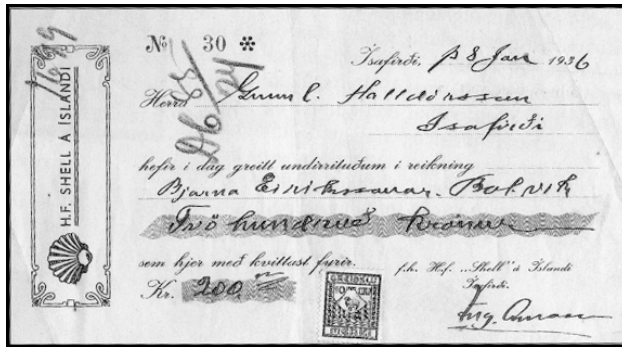 H.F. SHELL Á ÍSLANDI
№ 30
Ísafirði, þ 8 Jan 1936
Herra Gunnl. Halldórsson
Ísafirði
hefir í dag greitt undirrituðum í reikning
Bjarna Eiríkssonar. Bolvík
Tvö hundruð krónur
sem hjer með kvittast fyrir.
Kr. 200
f.h. H.f. „Shell" á Íslandi
Ísafirði.